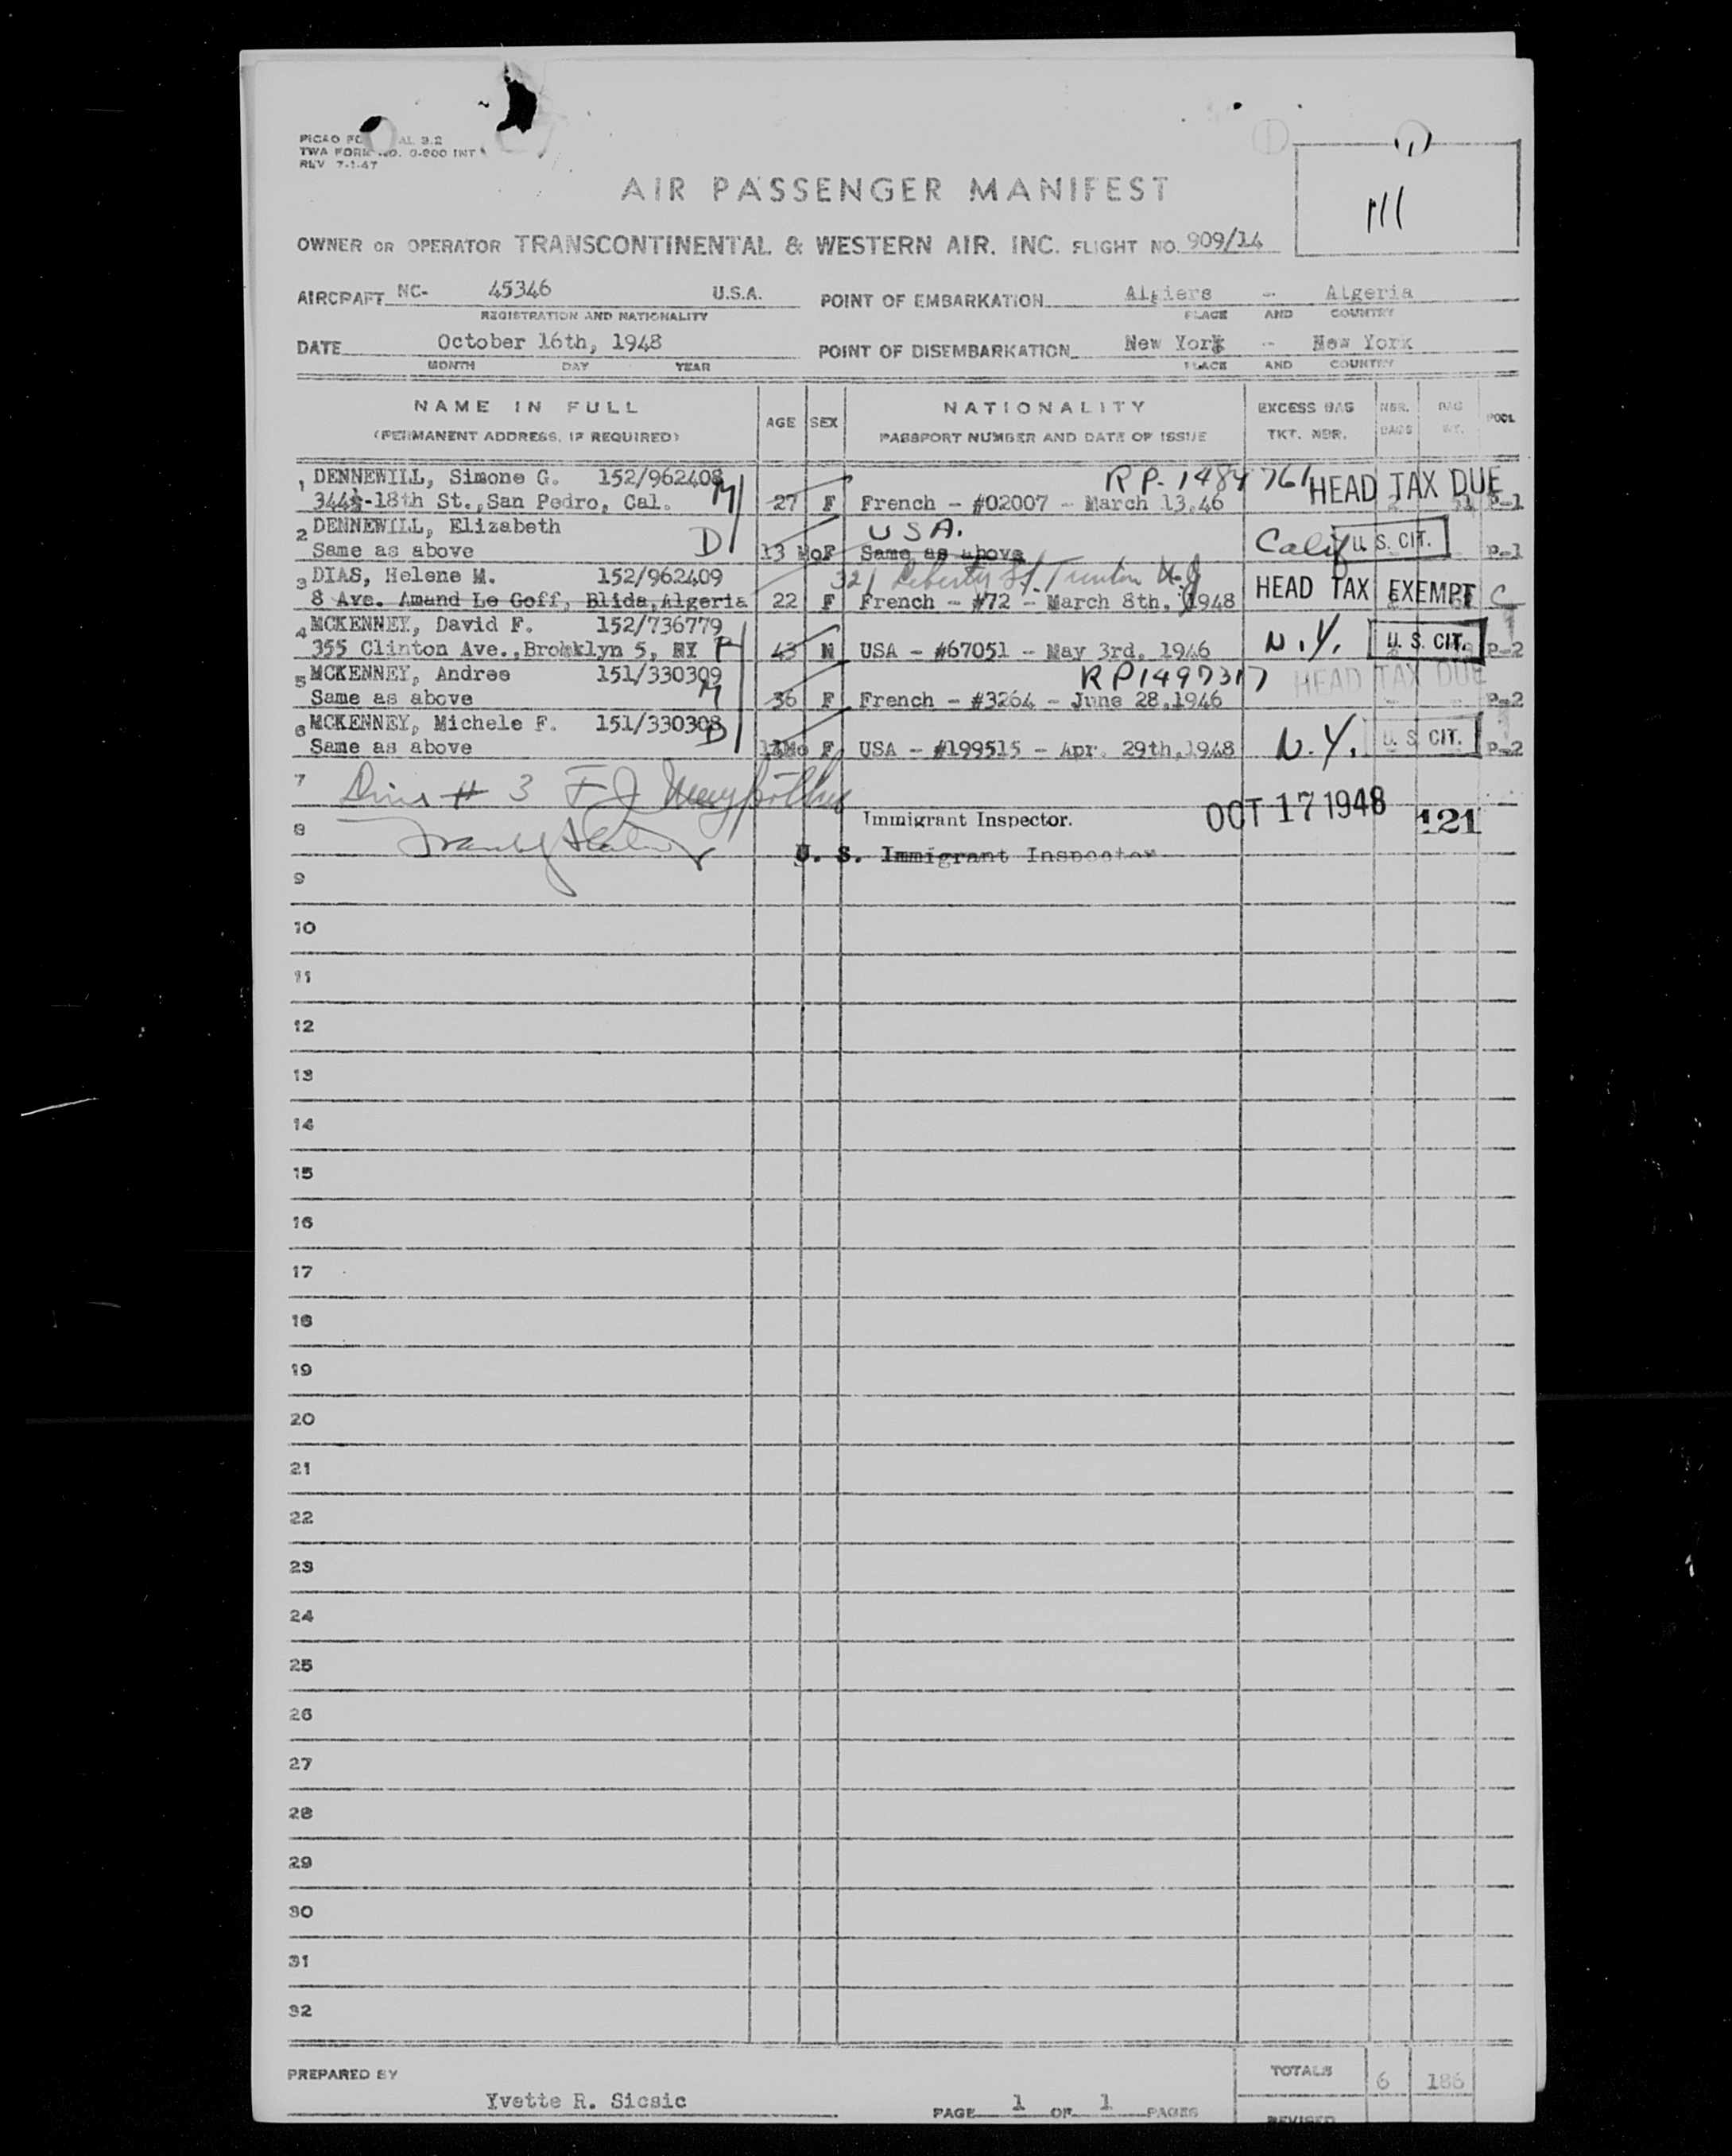 TWA FORM NO. 0-900 INT
REV 7-1-47
AIR PASSENGER MANIFEST
111
OWNER OR OPERATOR TRANSCONTINENTAL & WESTERN AIR, INC. FLIGHT NO. 909/14
AIRCRAFT NC- 45346 U.S.A. POINT OF EMBARKATION Algiers - Algeria
REGISTRATION AND NATIONALITY PLACE AND COUNTRY
DATE October 16th, 1948 POINT OF DISEMBARKATION New York - New York
MONTH DAY YEAR PLACE AND COUNTRY
NAME IN FULL AGE SEX NATIONALITY EXCESS BAG NBR. BAG POOL
(PERMANENT ADDRESS, IF REQUIRED) PASSPORT NUMBER AND DATE OF ISSUE TKT. NBR. BAGS WT.
1 DENNEWILL, Simone G. 152/962408 M RP-1484761 HEAD TAX DUE
344½-18th St., San Pedro, Cal. 27 F French - #02007 - March 13,46 P-1
2 DENNEWILL, Elizabeth D USA. Calif U. S. CIT.
Same as above 13 Mo F Same as above P-1
3 DIAS, Helene M. 152/962409 321 Liberty St. Trenton N.J. HEAD TAX EXEMPT
8 Ave. Amand Le Goff, Blida, Algeria 22 F French - #72 - March 8th, 1948
4 MCKENNEY, David F. 152/736779 N.Y. U. S. CIT.
355 Clinton Ave., Brooklyn 5, NY F 43 M USA - #67051 - May 3rd, 1946 P-2
5 MCKENNEY, Andree 151/330309 M RP1497317 HEAD TAX DUE
Same as above 36 F French - #3264 - June 28,1946 P-2
6 MCKENNEY, Michele F. 151/330308 D N.Y. U. S. CIT.
Same as above Mo F USA - #199515 - Apr. 29th,1948 P-2
7 # 3
8 Immigrant Inspector. OCT 17 1948 121
U. S. Immigrant Inspector
9
10
11
12
13
14
15
16
17
18
19
20
21
22
23
24
25
26
27
28
29
30
31
32
PREPARED BY TOTALS 6 186
Yvette R. Sicsic PAGE 1 OF 1 PAGES
REVISED